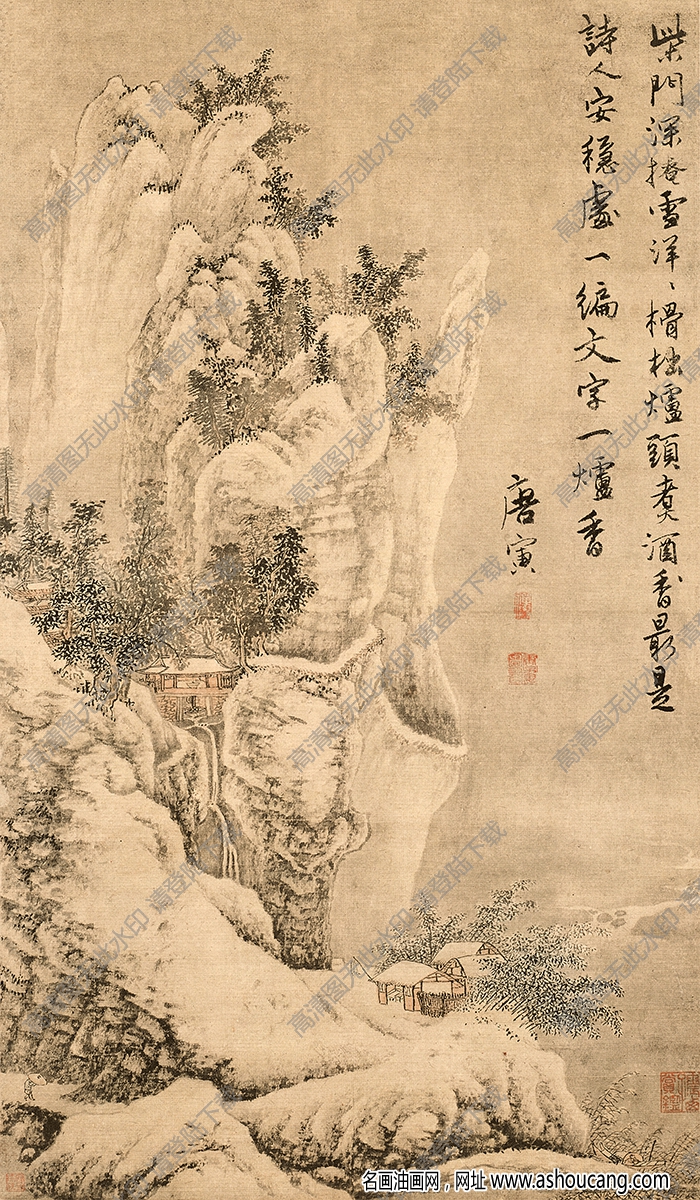 柴門深掩雪洋〻榾柮爐頭煑酒香最是
詩人安穩處一編文字一爐香
唐寅
高清图无此水印 请登陆下载
名画油画网，网址 www.ashoucang.com